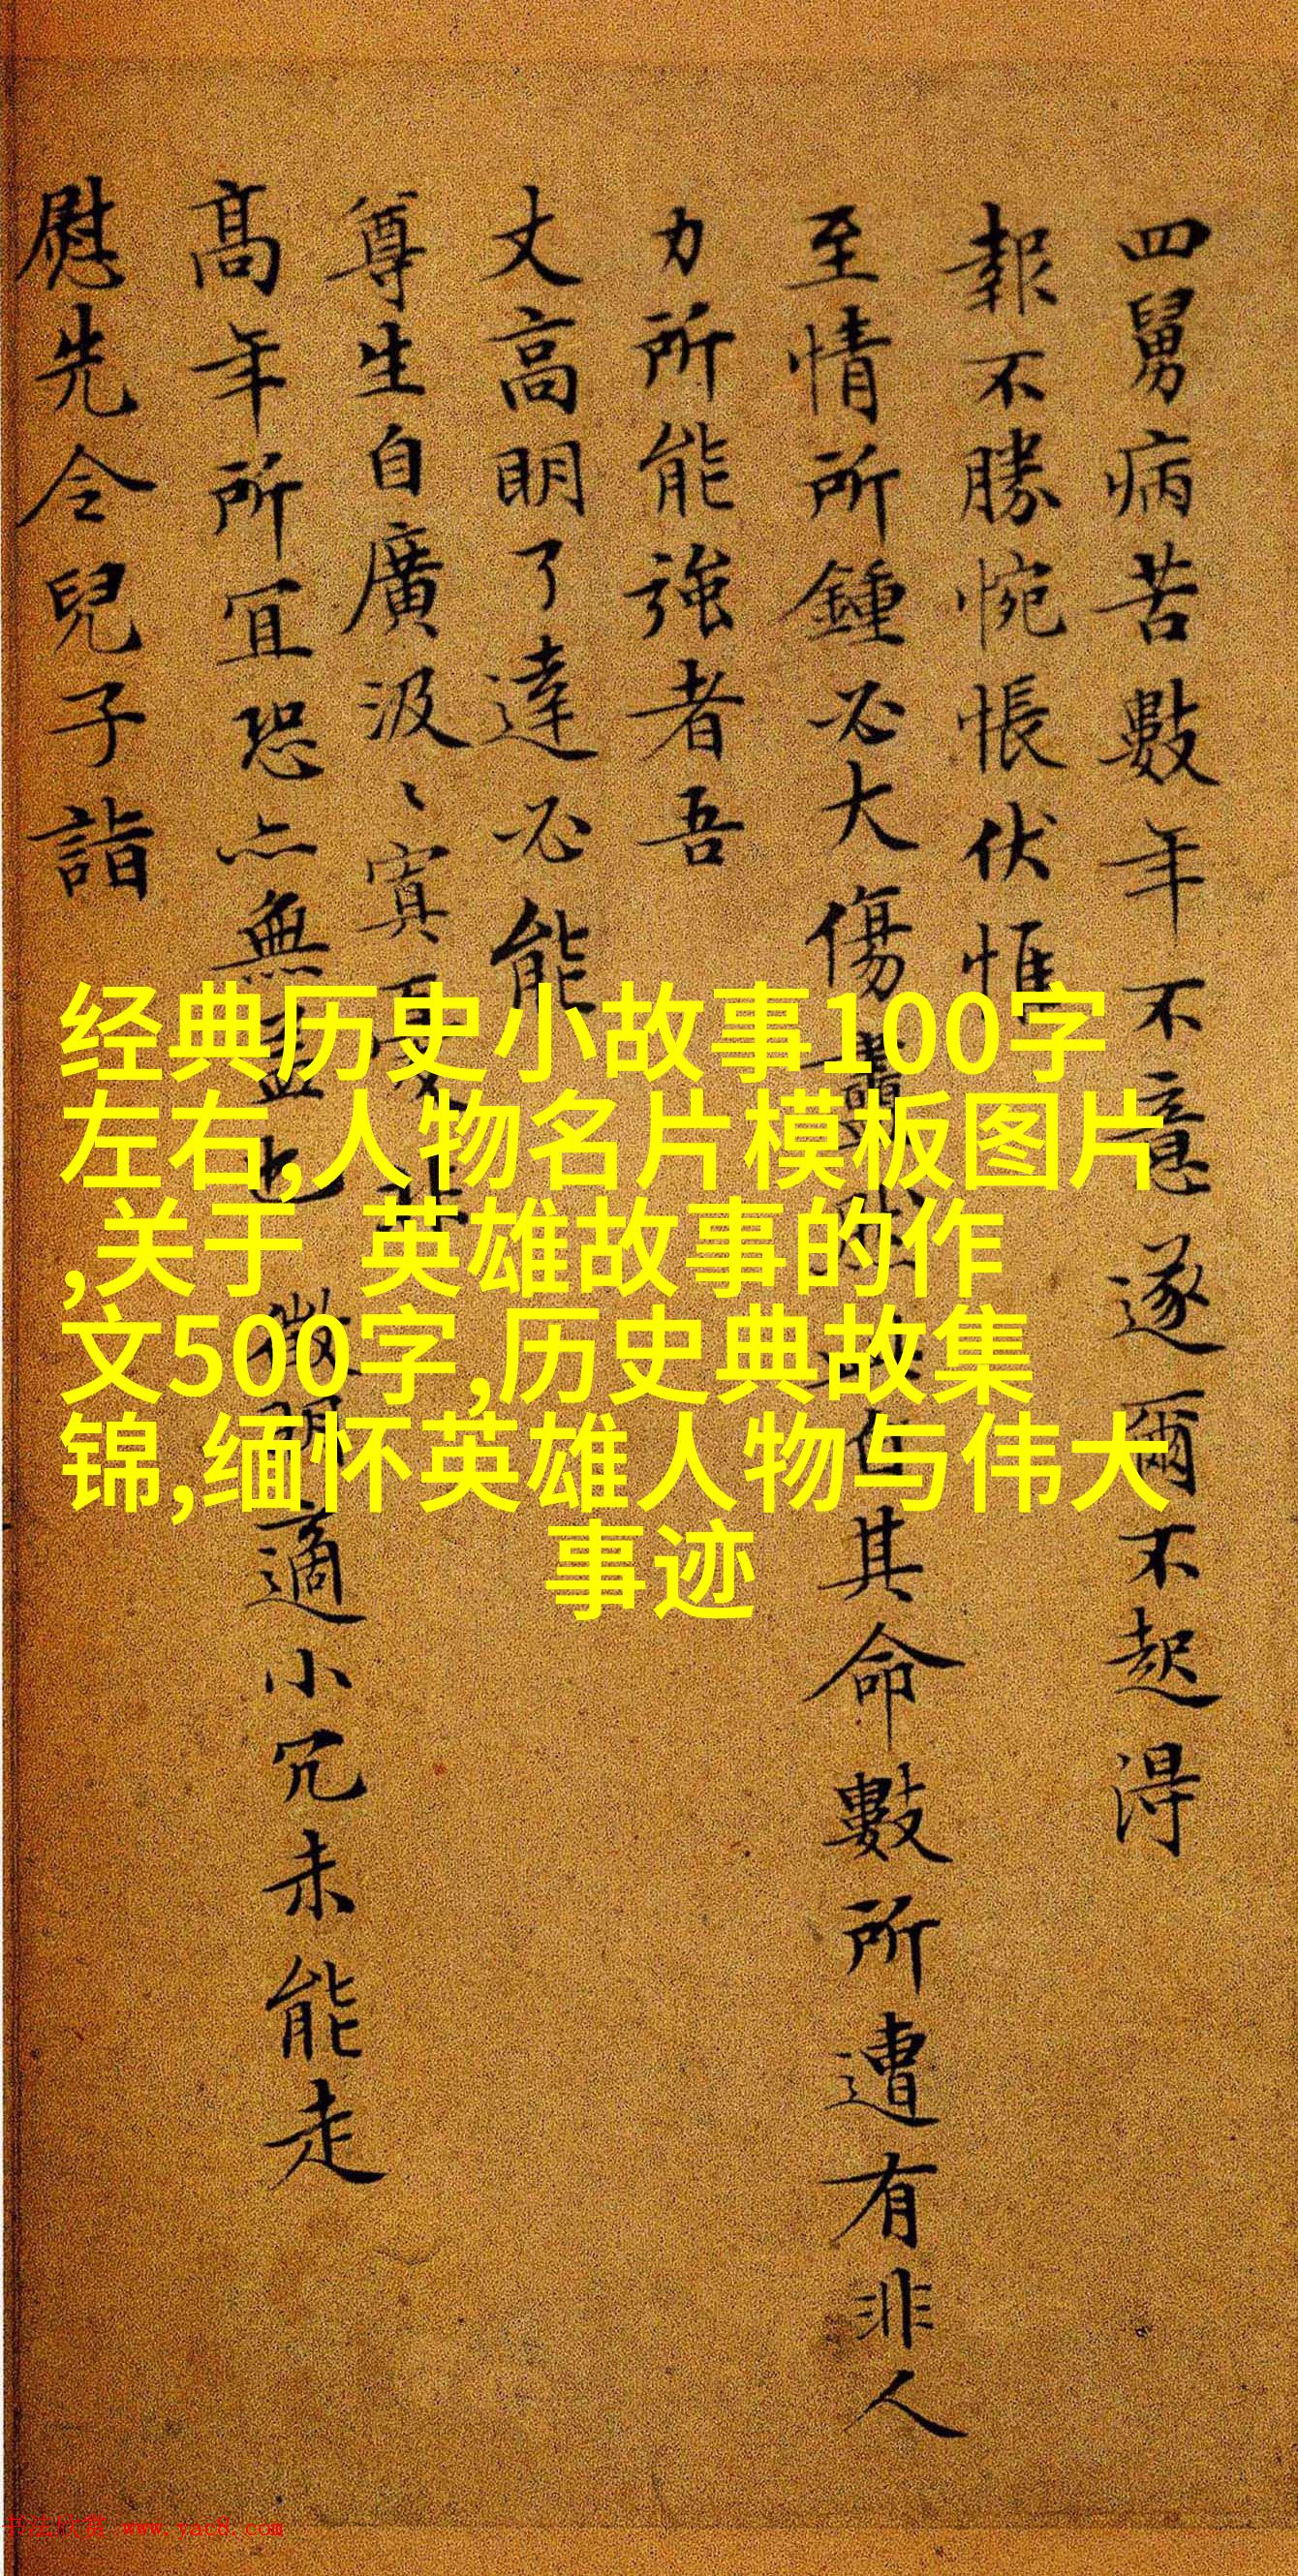 四舅病苦數年不意遂爾不起得
報不勝惋悵伏惟
至情所鍾必大傷 其命數所遭有非人
力所能強者吾
丈高明了達必能
尊生自廣汲〻寘
髙年所宜恐亦無 適小冗未能走
慰先令兒子詣
经典历史小故事100字
左右,人物名片模板图片
,关于 英雄故事的作
文500字,历史典故集
锦,缅怀英雄人物与伟大
事迹
书法欣赏 www.yac8.com